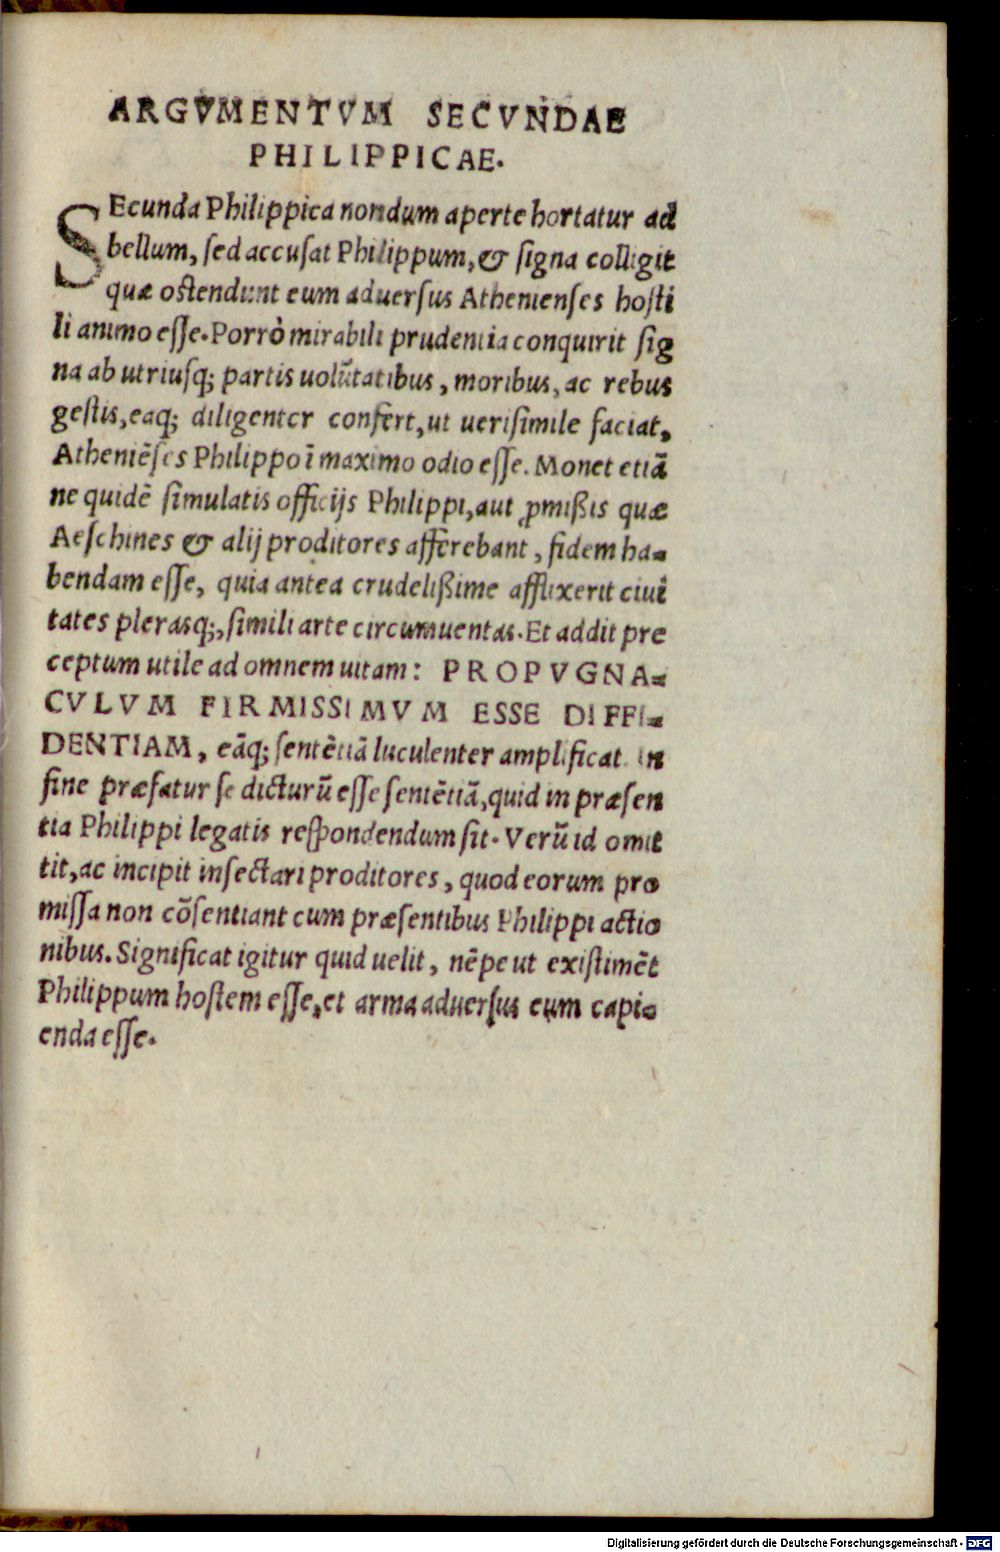 ARGVMENTVM SECVNDAE
PHILIPPICAE.
SEcunda Philippica nondum aperte hortatur ad
bellum, ſed accuſat Philippum, & ſigna colligit
quæ oſtendunt eum aduerſus Athenienſes hoſti
li animo eſſe. Porrò mirabili prudentia conquirit ſig
na ab utriusq; partis uolũtatibus, moribus, ac rebus
geſtis, eaq; diligenter confert, ut ueriſimile faciat,
Atheniẽſes Philippo ĩ maximo odio eſſe. Monet etiã
ne quidẽ ſimulatis officijs Philippi, aut ꝓmißis quæ
Aeſchines & alij proditores afferebant, fidem ha-
bendam eſſe, quia antea crudelißime afflixerit ciui
tates plerasq;, ſimili arte circumuentas. Et addit pre
ceptum utile ad omnem uitam: PROPVGNA-
CVLVM FIRMISSIMVM ESSE DIFFI-
DENTIAM, eãq; ſentẽtiã luculenter amplificat. in
fine præfatur ſe dicturũ eſſe ſentẽtiã, quid in præſen
tia Philippi legatis reſpondendum ſit. Verũ id omit
tit, ac incipit inſectari proditores, quod eorum pro
miſſa non cõſentiant cum præſentibus Philippi actio
nibus. Significat igitur quid uelit, nẽpe ut exiſtimẽt
Philippum hoſtem eſſe, et arma aduerſus eum capi-
enda eſſe.
Digitalisierung gefördert durch die Deutsche Forschungsgemeinschaft - DFG